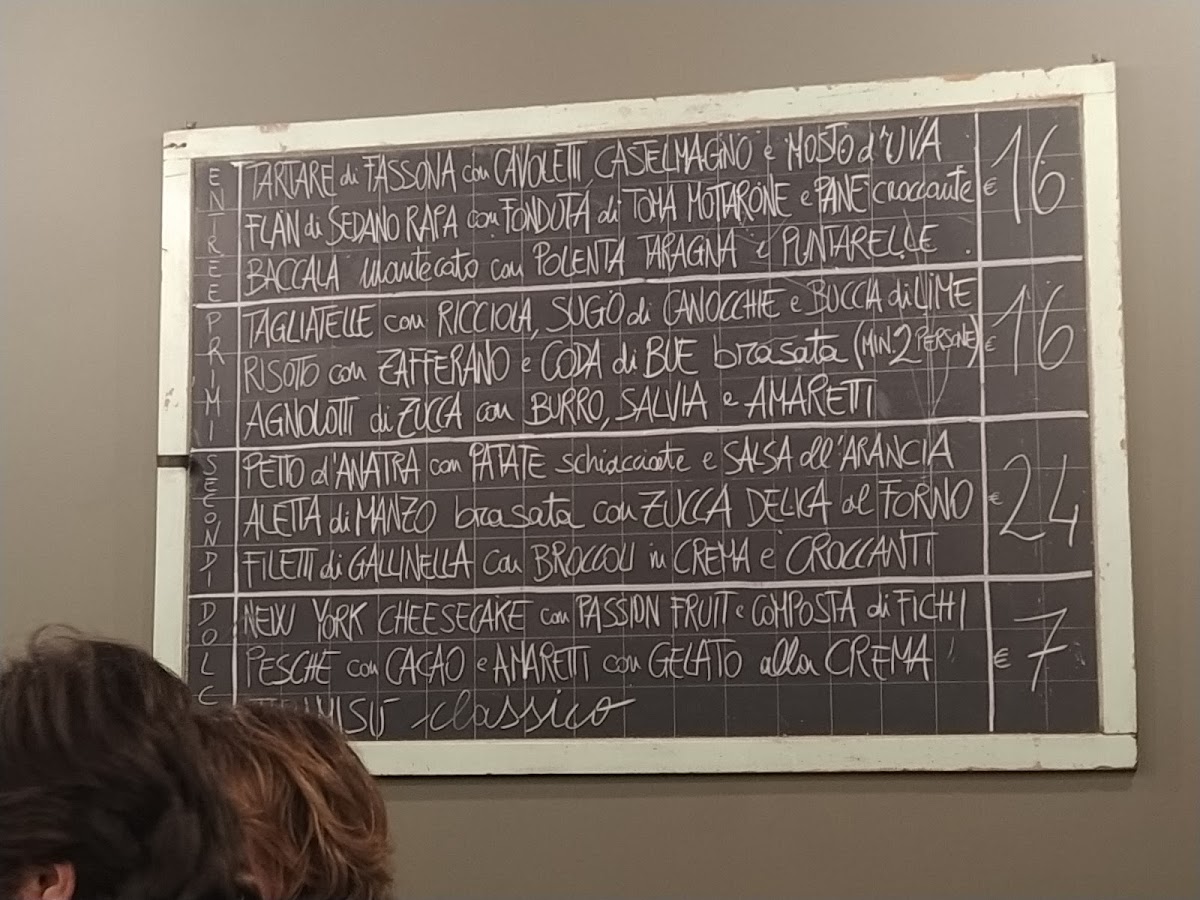 ENTREE
TARTARE di FASSONA con CAVOLETTI, CASTELMAGNO e MOSTO d'UVA
FLAN di SEDANO RAPA con FONDUTA di TOMA MOTTARONE e PANE croccante
BACCALA mantecato con POLENTA TARAGNA e PUNTARELLE
€ 16
PRIMI
TAGLIATELLE con RICCIOLA, SUGO di CANOCCHIE e BUCCIA di LIME
RISOTTO con ZAFFERANO e CODA di BUE brasata (MIN. 2 PERSONE)
AGNOLOTTI di ZUCCA con BURRO, SALVIA e AMARETTI
€ 16
SECONDI
PETTO d'ANATRA con PATATE schiacciate e SALSA all'ARANCIA
ALETTA di MANZO brasata con ZUCCA DELICA al FORNO
FILETTI di GALLINELLA con BROCCOLI in CREMA e CROCCANTI
€ 24
DOLC
NEW YORK CHEESECAKE con PASSION FRUIT e COMPOSTA di FICHI
PESCHE con CACAO e AMARETTI con GELATO alla CREMA
€ 7
classico